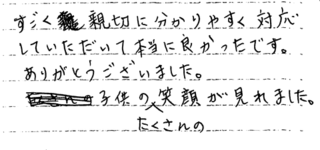 すごく親切に分かりやすく対応
していただいて本当に良かったです。
ありがとうございました。
子供のたくさんの笑顔が見れました。